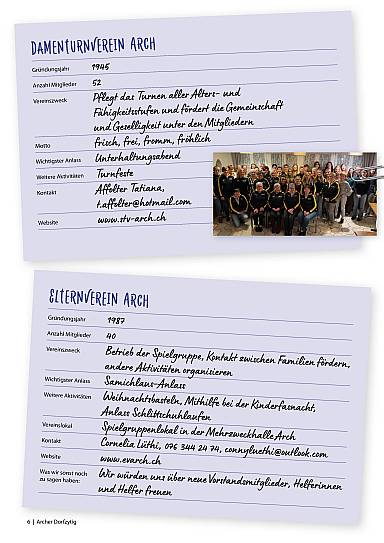 DAMENTURNVEREIN ARCH
Gründungsjahr 1945
Anzahl Mitglieder 52
Vereinszweck Pflegt das Turnen aller Alters- und
Fähigkeitsstufen und fördert die Gemeinschaft
und Geselligkeit unter den Mitgliedern
Motto frisch, frei, fromm, fröhlich
Wichtigster Anlass Unterhaltungsabend
Weitere Aktivitäten Turnfeste
Kontakt Affolter Tatiana,
t.affolter@hotmail.com
Website www.stv-arch.ch
ELTERNVEREIN ARCH
Gründungsjahr 1987
Anzahl Mitglieder 40
Vereinszweck Betrieb der Spielgruppe, Kontakt zwischen Familien fördern,
andere Aktivitäten organisieren
Wichtigster Anlass Samichlaus-Anlass
Weitere Aktivitäten Weihnachtsbasteln, Mithilfe bei der Kinderfasnacht,
Anlass Schlittschuhlaufen
Vereinslokal Spielgruppenlokal in der Mehrzweckhalle Arch
Kontakt Cornelia Lüthi, 076 344 24 74, connyluethi@outlook.com
Website www.evarch.ch
Was wir sonst noch Wir würden uns über neue Vorstandsmitglieder, Helferinnen
zu sagen haben: und Helfer freuen
6 | Archer Dorfzytig